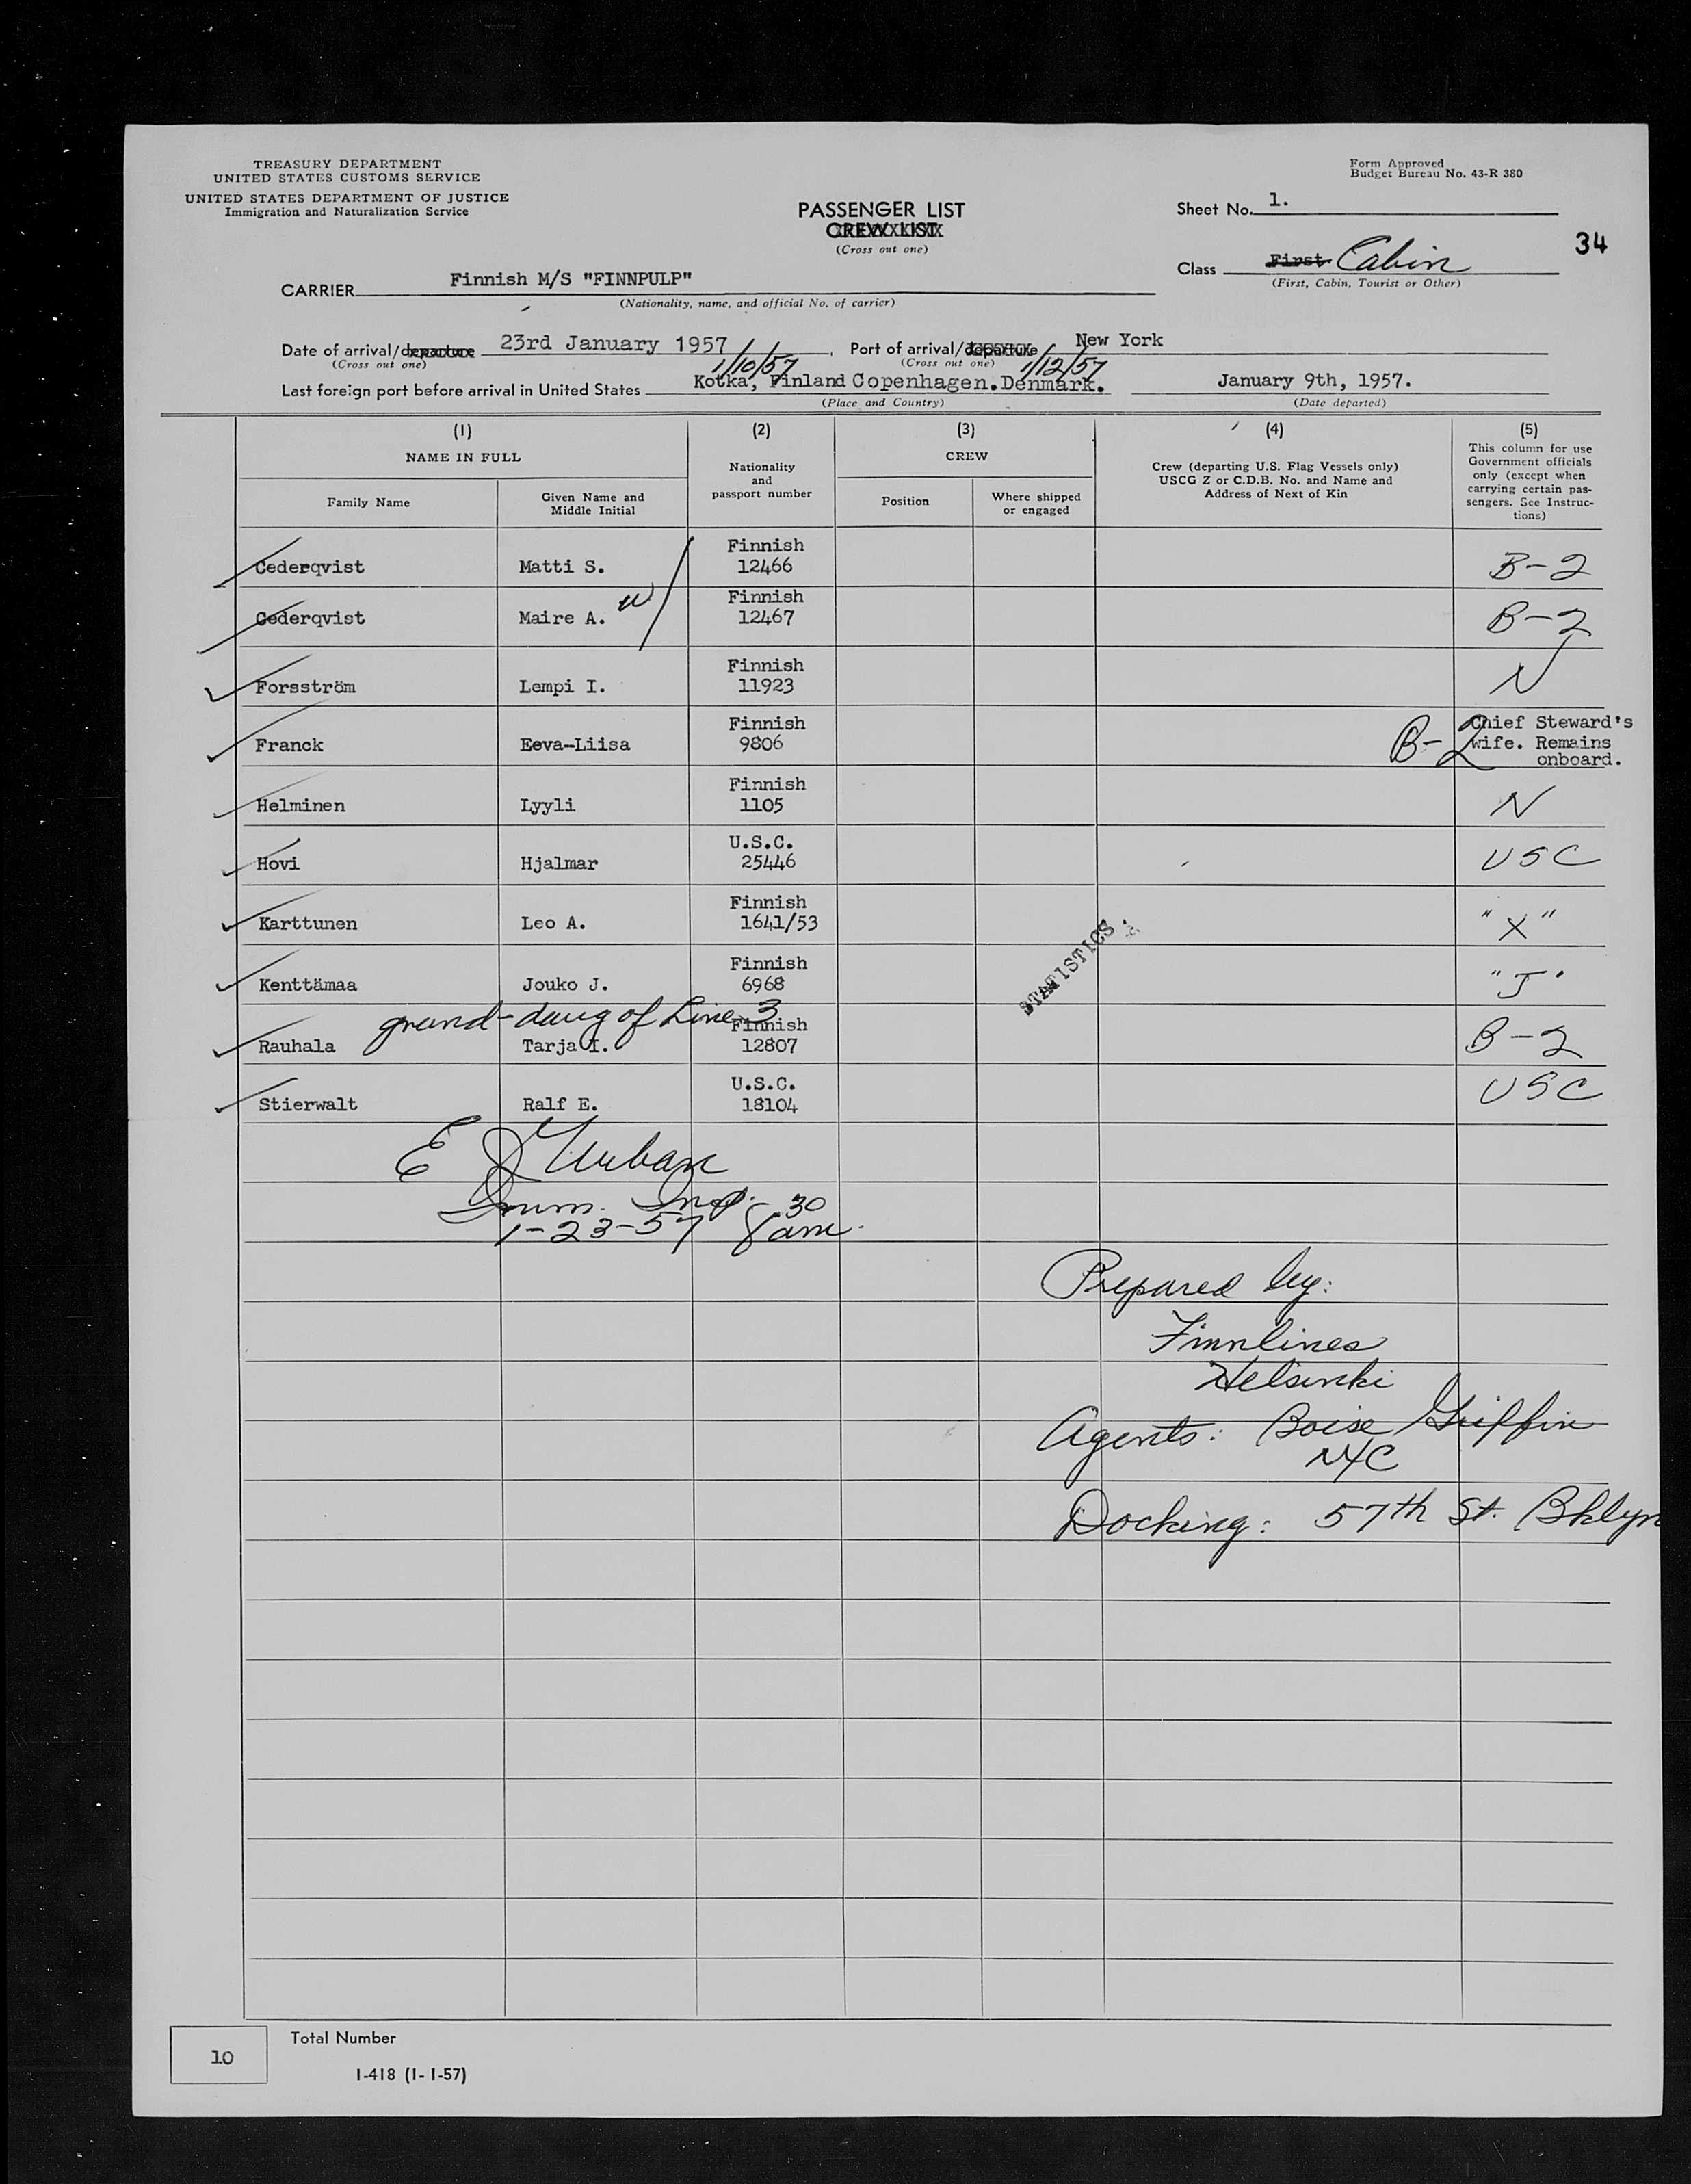 TREASURY DEPARTMENT
UNITED STATES CUSTOMS SERVICE
UNITED STATES DEPARTMENT OF JUSTICE
Immigration and Naturalization Service
Form Approved
Budget Bureau No. 43-R 380
PASSENGER LIST
CREW LIST
(Cross out one)
Sheet No. 1.
34
Class First Cabin
(First, Cabin, Tourist or Other)
CARRIER Finnish M/S "FINNPULP"
(Nationality, name, and official No. of carrier)
Date of arrival/departure 23rd January 1957, Port of arrival/departure New York
(Cross out one) 1/10/57 (Cross out one) 1/12/57
Last foreign port before arrival in United States Kotka, Finland Copenhagen.Denmark. January 9th, 1957.
(Place and Country) (Date departed)
(1) (2) (3) (4) (5)
NAME IN FULL
Family Name
Given Name and
Middle Initial
Nationality
and
passport number
CREW
Position
Where shipped
or engaged
Crew (departing U.S. Flag Vessels only)
USCG Z or C.D.B. No. and Name and
Address of Next of Kin
This column for use
Government officials
only (except when
carrying certain pas-
sengers. See Instruc-
tions)
Finnish
Cederqvist Matti S. 12466 B-2
Finnish
Cederqvist Maire A. W 12467 B-2
Finnish
Forsström Lempi I. 11923 N
Finnish
Franck Eeva-Liisa 9806 B-2
Chief Steward's
wife. Remains
onboard.
Finnish
Helminen Lyyli 1105 N
U.S.C.
Hovi Hjalmar 25446 USC
Finnish
Karttunen Leo A. 1641/53 "X"
STATISTICS
Finnish
Kenttämaa Jouko J. 6968 "J"
grand-daug of Line 3
Finnish
Rauhala Tarja I. 12807 B-2
U.S.C.
Stierwalt Ralf E. 18104 USC
E J Urban
Imm. Insp.
1-23-57 8 30 am.
Prepared by:
Finnlines
Helsinki
Agents: Boise Griffin
NYC
Docking: 57th St. Bklyn
10
Total Number
I-418 (1-1-57)